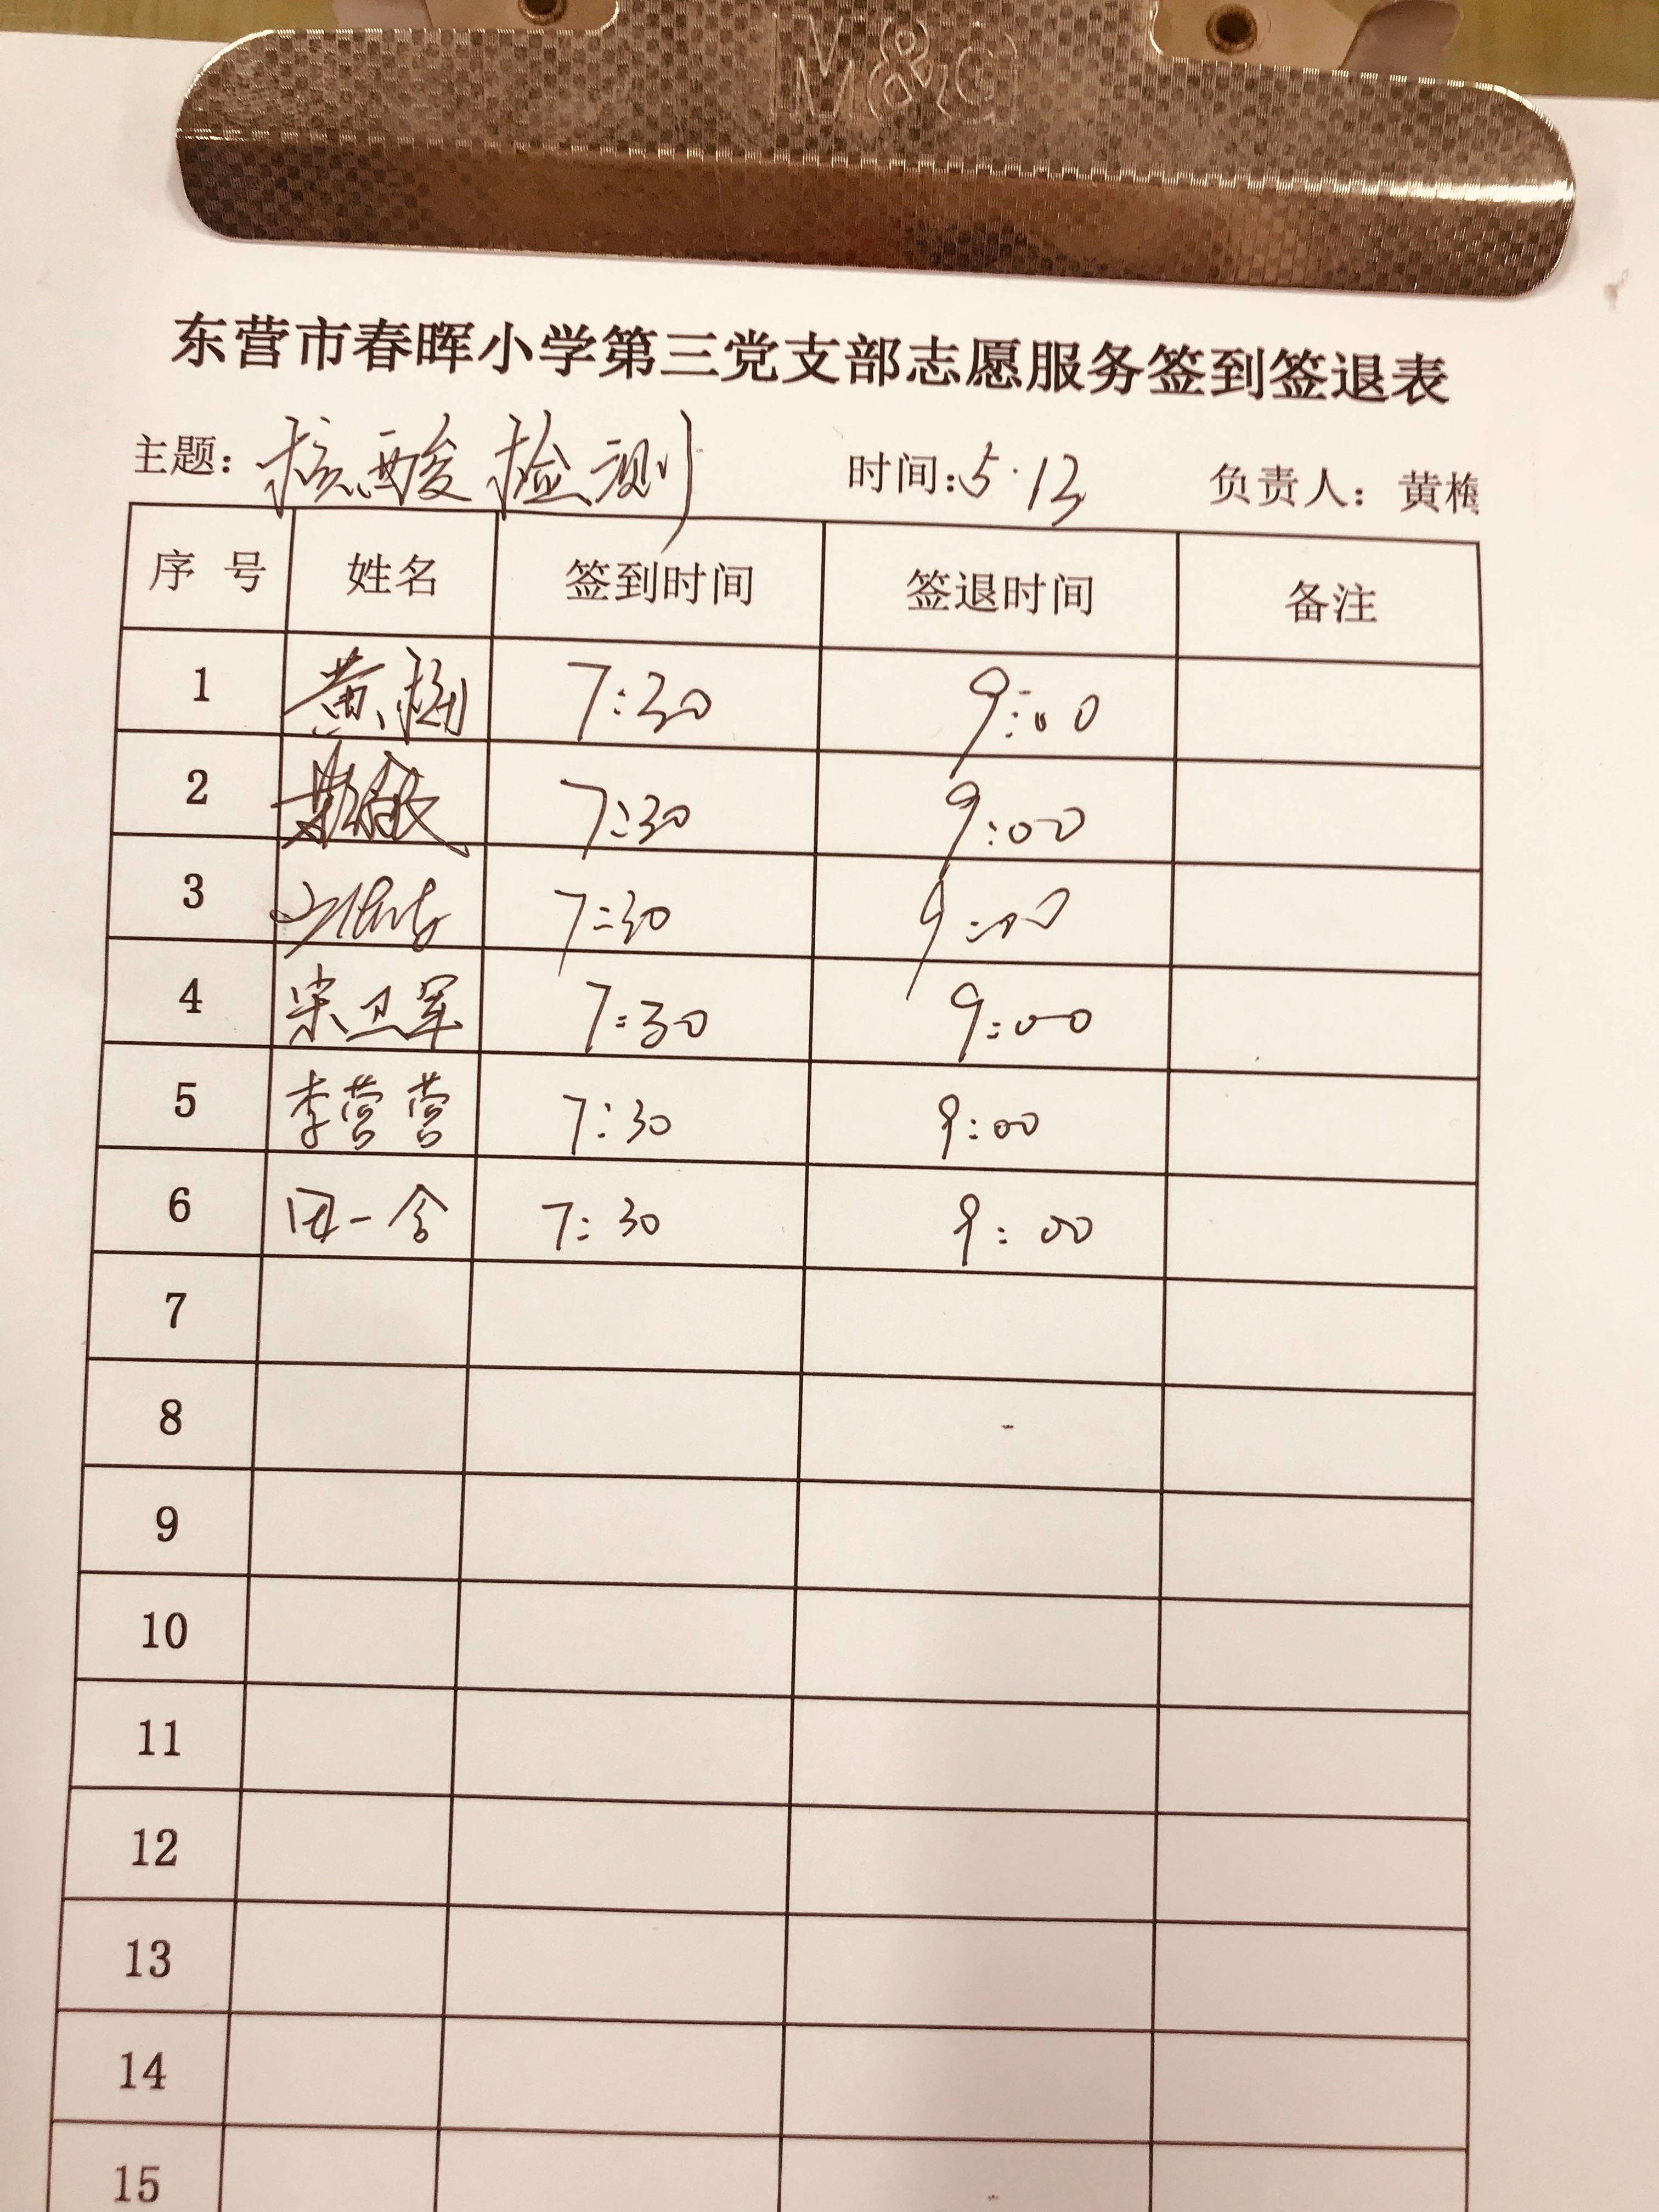 M&G
东营市春晖小学第三党支部志愿服务签到签退表
主题：核酸检测 时间：5.13 负责人：黄梅
序号 姓名 签到时间 签退时间 备注
1 黄梅 7:30 9:00
2 7:30 9:00
3 7:30 9:00
4 宋卫军 7:30 9:00
5 李营营 7:30 9:00
6 田一含 7:30 9:00
7
8
9
10
11
12
13
14
15